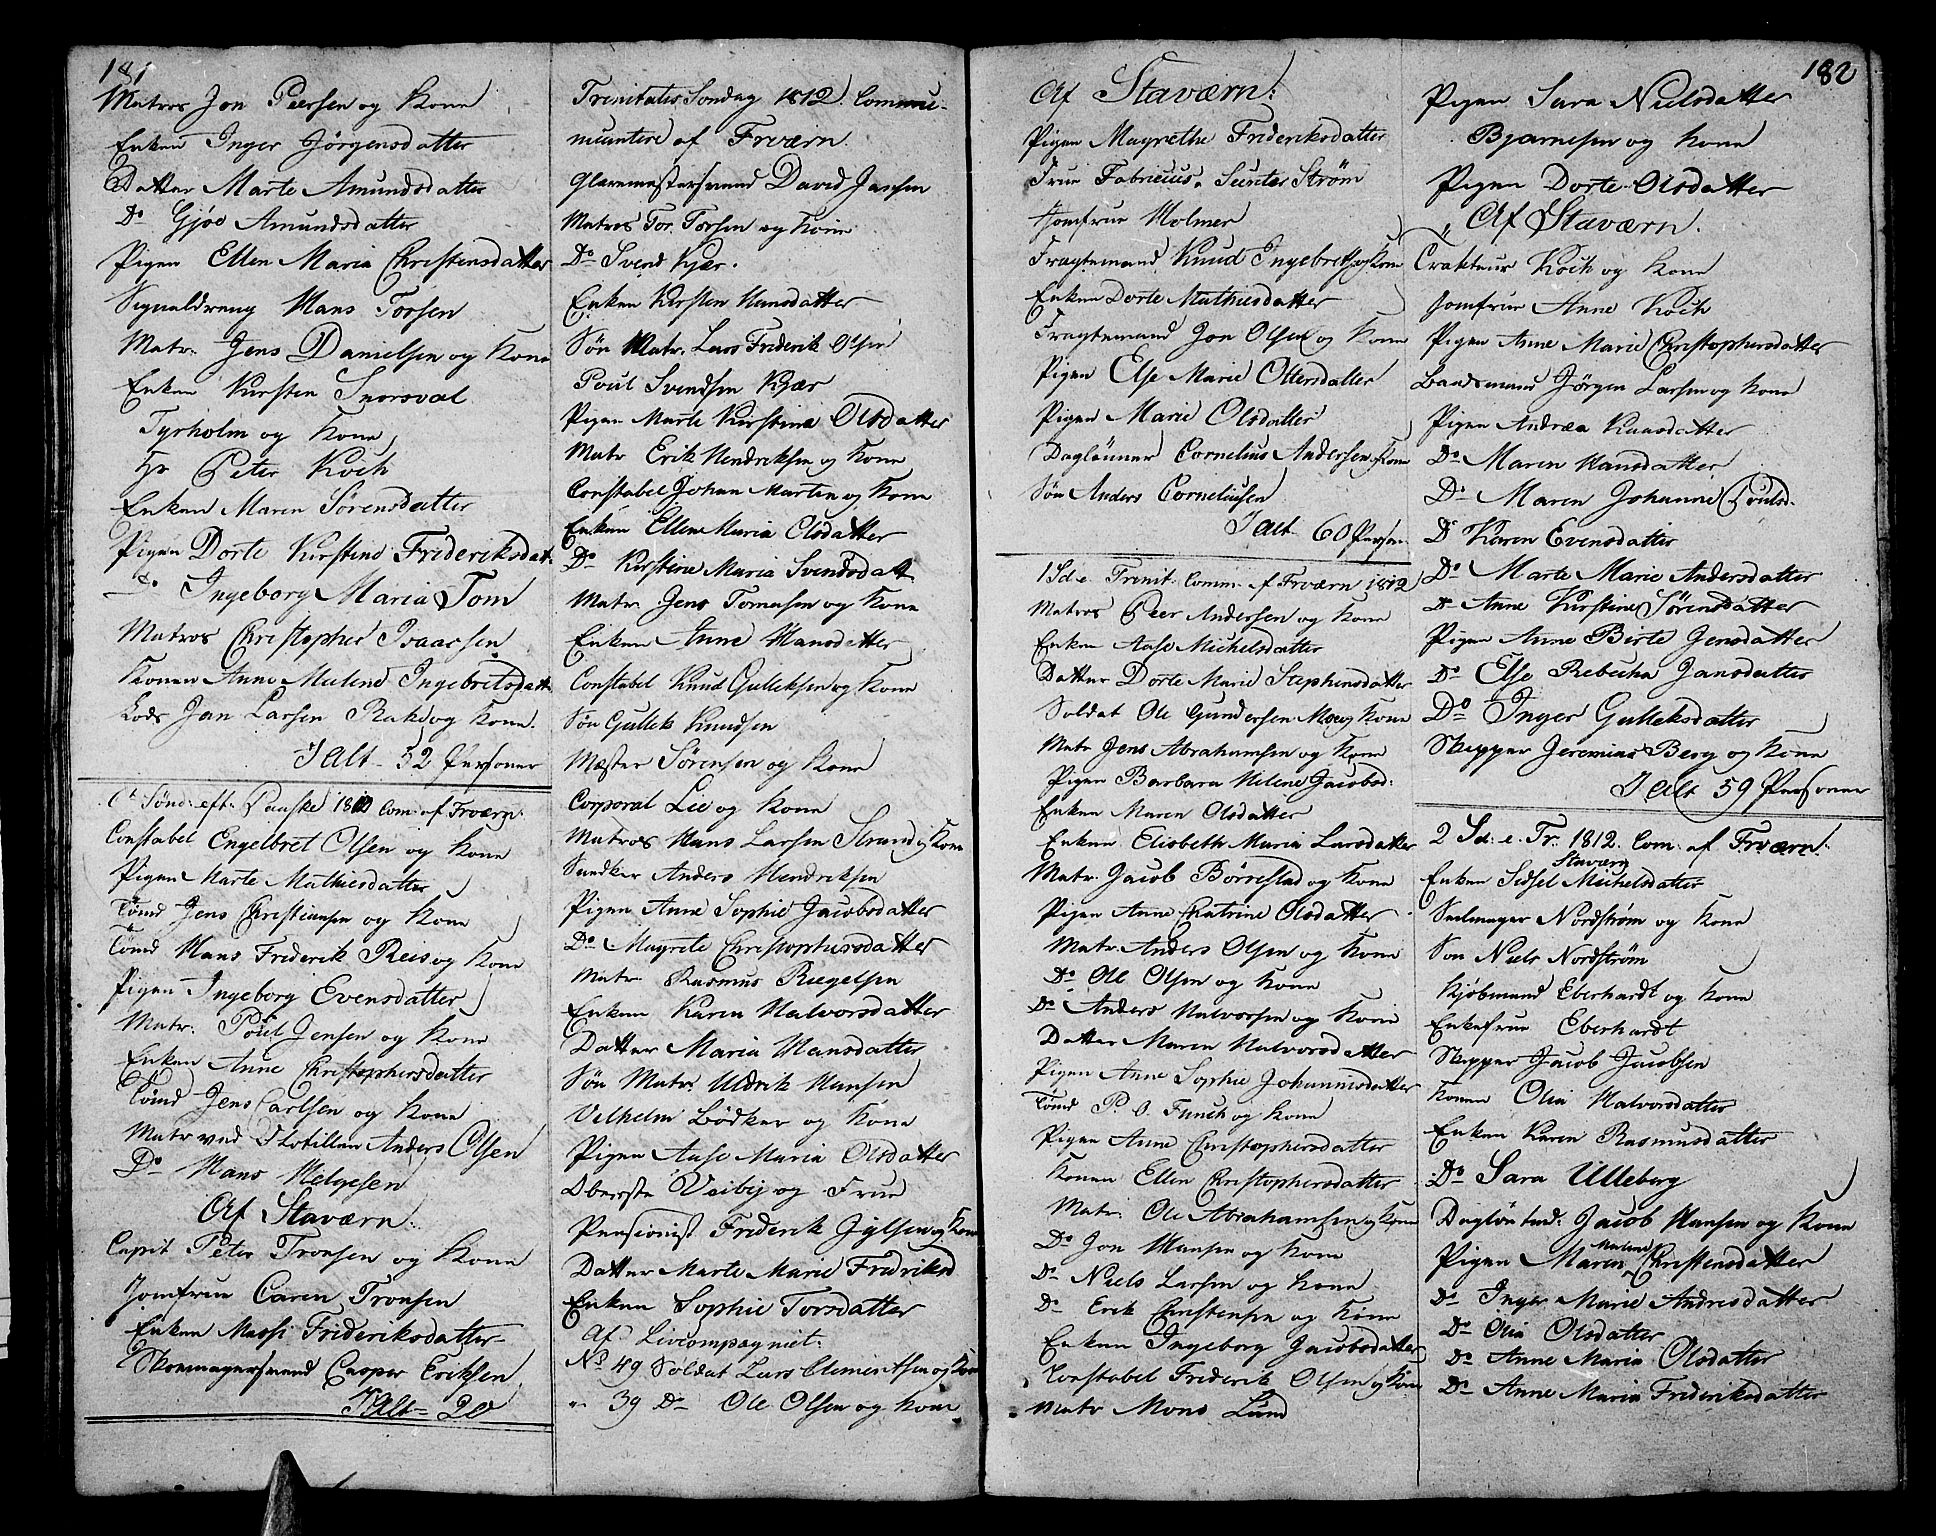 181
Matros Jon Peersen og Kone
Enken Inger Jørgensdatter
Datter Marte Amundsdatter
Do Gjøe Amundsdatter
Pigen Ellen Maria Christensdatter
Signaldreng Hans Torsen
Matr. Jens Danielsen og Kone
Enken Kirsten Snorsval
Tyrholm og Kone
Hr Peter Koch
Enken Maren Sørensdatter
Pigen Dorte Kirstine Frideriksdat.
Do Ingeborg Maria Tom
Matros Christopher Isaacsen
Konen Anne Malene Ingebretsdatt
Lods Jan Larsen Rake og Kone.
I Alt - 52 Personer
6te Sønd: eft: Paaske 1812 Com: af Frværn:
Constabel Engelbret Olsen og Kone
Pigen Marte Mathiesdatter
Tømd Jens Christiansen og Kone
Tømd Hans Friderik Reis og Kone
Pigen Ingeborg Evensdatter
Matr. Poul Jensen og Kone
Enken Anne Christophersdatter
Tømd Jens Carlsen og Kone
Matr ved Flotillen Anders Olsen
Do Hans Helgesen
Af Staværn:
Capit Peter Tronsen og Kone
Jomfrue Caren Tronsen
Enken Massi Frideriksdatter
Skomagersvend Casper Eriksen
I Alt - 20
Trinitatis Søndag 1812. Commu-
nicantere af Frværn.
Glarmestersvend David Jansen
Matros Tor Torsen og Kone
Do Svend Kjær.
Enken Kirsten Hansdatter
Søn Matr. Lars Friderik Olsen
Poul Svendsen Kjær
Pigen Marte Kirstine Olsdatter
Matr Erik Hendriksen og Kone
Constabel Johan Martin og Kone
Enken Ellen Maria Olsdatter
Do Kirstine Maria Svendsdatt
Matr. Jens Tomasen og Kone
Enken Anne Hansdatter
Constabel Knud Gulleksen og Kone
Søn Gullek Knudsen
Mæster Sørensen og Kone
Corporal Lie og Kone
Matros Hans Larsen Strand og Kone
Snedker Anders Hendriksen
Pigen Anne Sophie Jacobsdatter
Do Magrete Christophersdatter
Matr. Rasmus Riegelsen
Enken Karen Halvorsdatter
Datter Maria Hansdatter
Søn Matr. Uldrik Hansen
Vilhelm Bødker og Kone
Pigen Aase Maria Olsdatter
Oberste Veibij og Frue
Pensionist Friderik Jylsen og Kone
Datter Marte Marie Fridriksd
Enken Sophie Torsdatter
Af Livcompagniet:
No 49 Soldat Lars Clementsen og Kone
" 39 Do Ole Olsen og Kone
Af Staværn:
Pigen Magrethe Frideriksdatter
Frue Fabricius. Sunter Strøm
Jomfrue Holmer
Fragtemand Knud Ingebretsen og Kone
Enken Dorte Mathiesdatter
Fragtemand Jon Olsen og Kone
Pigen Else Marie Ottersdatter
Pigen Marie Olsdatter
Daglønner Cornelius Andersen og Kone
Søn Anders Corneliusen
I alt 60 Person
1 Sd. e. Trinit. Comm. af Frværn 1812
Matros Peer Andersen og Kone
Enken Aase Michelsdatter
Datter Dorte Marie Stephensdatter
Soldat Ole Gundersen Moe og Kone
Matr Jens Abrahamsen og Kone
Pigen Barbara Helene Jacobsd:
Enken Maren Olsdatter
Enken Elisbeth Maria Larsdatter
Matr. Jacob Børrestad og Kone
Pigen Anne Chatrine Olsdatter
Matr. Anders Olsen og Kone
Do Ole Olsen og Kone
Do Anders Halvorsen og Kone
Datter Maren Halvorsdatter
Pigen Anne Sophie Johannisdatter
Tømd P. O. Funch og Kone
Pigen Anne Christophersdatter
Konen Ellen Christophersdatter
Matr. Ole Abrahamsen og Kone
Do Jon Hansen og Kone
Do Niels Larsen og Kone
Do Erik Christensen og Kone
Enken Ingeborg Jacobsdatter
Constabel Friderik Olsen og Kone
Matr Mons Lund
182
Pigen Sara Nielsdatter
Bjarnesen og Kone
Pigen Dorte Olsdatter
Af Staværn.
Trakteur Koch og Kone
Jomfrue Anne Koch
Pigen Anne Marie Christophersdatter
Baadsmand Jørgen Larsen og Kone
Pigen Andrea Hansdatter
Do Maren Hansdatter
Do Maren Johanne Poulsd.
Do Karen Evensdatter
Do Marte Marie Andersdatter
Do Anne Kirstine Sørensdatter
Pigen Anne Birte Jensdatter
Do Else Rebecha Jansdatter
Do Inger Gulleksdatter
Skipper Jeremias Berg og Kone
I Alt 59 Personer
2 Sd. e. Tr. 1812. Com. af Frværn.
Staværn
Enken Sidsel Michelsdatter
Seilmager Nordstrøm og Kone
Søn Niels Nordstrøm
Kjøbmand Eberhardt og Kone
Enkefrue Eberhardt
Skipper Jacob Jacobsen
Konen Olia Halvorsdatter
Enken Karen Rasmusdatter
Do Sara Ulleberg
Dagløn:md: Jacob Hansen og Kone
Pigen Maren Malene Christensdatter
Do Inger Marie Andreasdatter
Do Olia Olsdatter
Do Anne Maria Olsdatter
Do Anne Maria Frideriksdatter